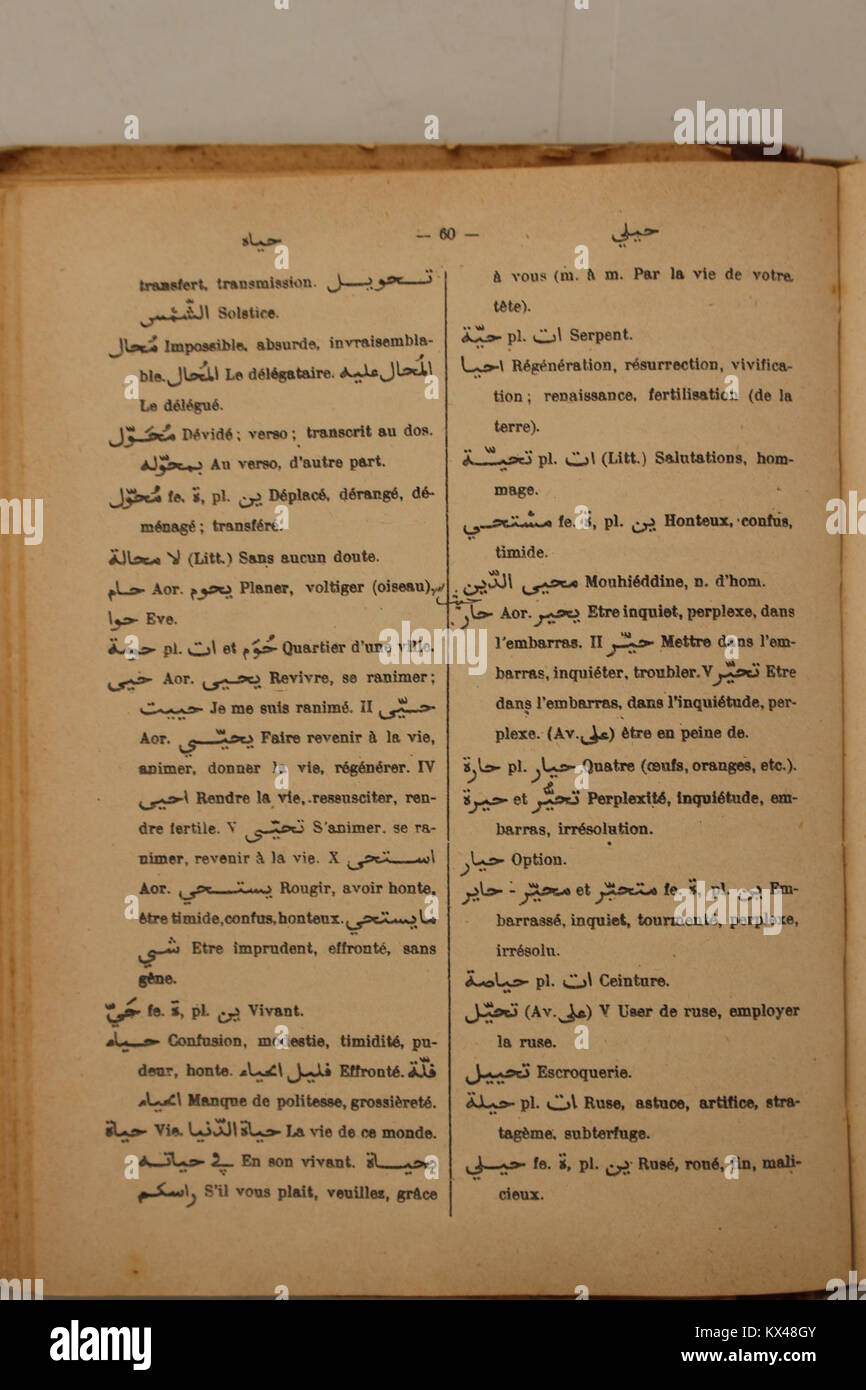 حياه — 60 — حيلي
transfert, transmission. تحويل
الشّمْس Solstice.
مُحال Impossible, absurde, invraisembla-
ble. المُحال Le délégataire. المُحال عليه
Le délégué.
مُحَوّل Dévidé; verso; transcrit au dos.
بمحوّله Au verso, d'autre part.
مُحوّل fe. ة, pl. ين Déplacé, dérangé, dé-
ménagé; transféré.
لا محالة (Litt.) Sans aucun doute.
حام Aor. يحوم Planer, voltiger (oiseau).
حوا Eve.
حومة pl. ات et حُوَم Quartier d'une ville.
حيي Aor. يحيى Revivre, se ranimer;
حييت Je me suis ranimé. II حيّى
Aor. يحيّي Faire revenir à la vie,
animer, donner la vie, régénérer. IV
احيى Rendre la vie, ressusciter, ren-
dre fertile. V تحيّى S'animer. se ra-
nimer, revenir à la vie. X استحى
Aor. يستحي Rougir, avoir honte,
être timide, confus, honteux. ما يستحي
شي Etre imprudent, effronté, sans
gêne.
حَيّ fe. ة, pl. ين Vivant.
حياء Confusion, modestie, timidité, pu-
deur, honte. قليل الحياء Effronté. قلّة
الحياء Manque de politesse, grossièreté.
حياة Vie. حياة الدّنيا La vie de ce monde.
في حياته En son vivant. بحياة
راسكم S'il vous plait, veuillez, grâce
à vous (m. à m. Par la vie de votre
tête).
حيّة pl. ات Serpent.
احيا Régénération, résurrection, vivifica-
tion; renaissance, fertilisation (de la
terre).
تحيّة pl. ات (Litt.) Salutations, hom-
mage.
مستحي fe. ة, pl. ين Honteux, confus,
timide.
محيي الدّين Mouhiéddine, n. d'hom.
حار Aor. يحير Etre inquiet, perplexe, dans
l'embarras. II حيّر Mettre dans l'em-
barras, inquiéter, troubler. V تحيّر Etre
dans l'embarras, dans l'inquiétude, per-
plexe. (Av. على) être en peine de.
حارة pl. حيار Quatre (œufs, oranges, etc.).
حيرة et تحيُّر Perplexité, inquiétude, em-
barras, irrésolution.
حيار Option.
حاير - محيّر et متحيّر fe. ة, pl. ين Em-
barrassé, inquiet, tourmenté, perplexe,
irrésolu.
حياصة pl. ات Ceinture.
تحيّل (Av. على) V User de ruse, employer
la ruse.
تحييل Escroquerie.
حيلة pl. ات Ruse, astuce, artifice, stra-
tagème, subterfuge.
حيلي fe. ة, pl. ين Rusé, roué, fin, mali-
cieux.
alamy
Image ID: KX48GY
www.alamy.com